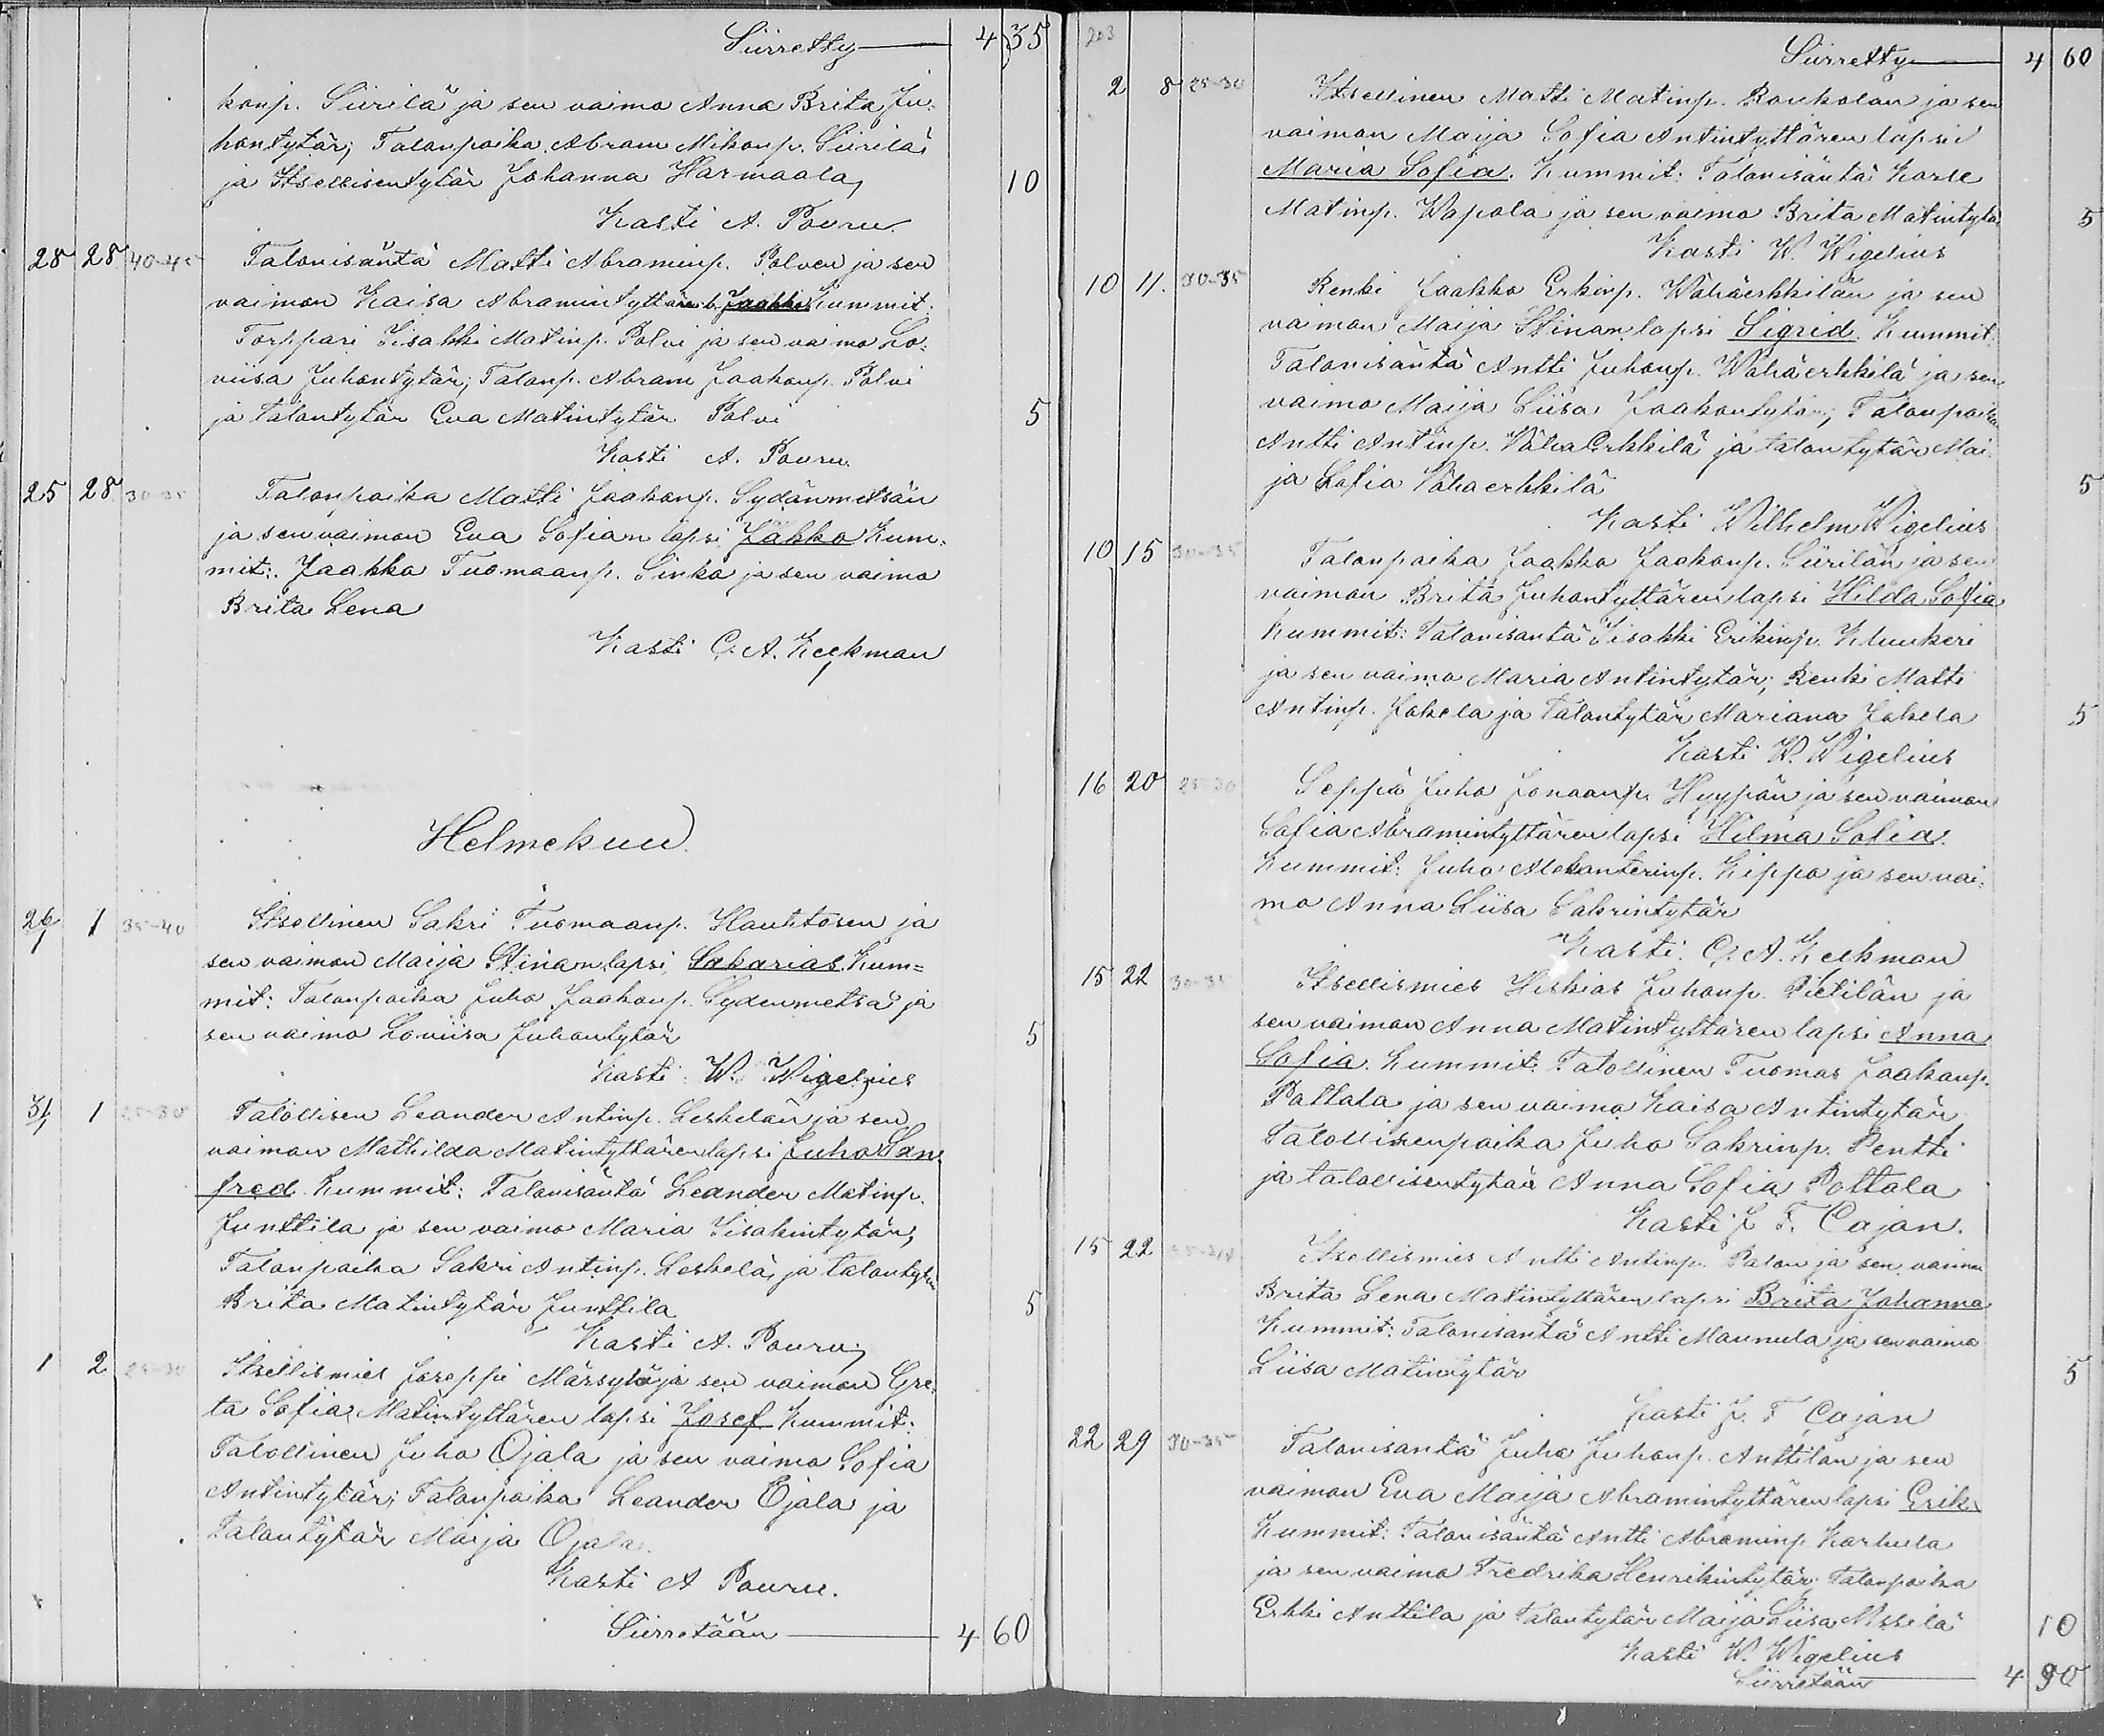 Siirretty 4 35
konp. Siirilä ja sen vaimo Anna Brita Ju-
hontytär; Talonpoika Abram Mikonp. Siirilä
ja Itsellisentytär Johanna Harmaala, 10
Kasti A. Pouru.
28 28 40-45 Talonisäntä Matti Abraminp. Polven ja sen
vaimon Kaisa Abramintyttären l. Jaakko Kummit:
Torppari Iisakki Matinp. Polvi ja sen vaimo Lo-
viisa Juhontytär; Talonp. Abram Jaakonp. Polvi
ja talontytär Eva Matintytär Polvi 5
Kasti A. Pouru.
25 28 30-35 Talonpoika Matti Jaakonp. Sydänmetsän
ja sen vaimon Eva Sofian lapsi Jakko Kum-
mit: Jaakko Tuomaanp. Sinko ja sen vaimo
Brita Lena
Kasti C. A. Keckman
Helmekuu.
29/1 1 35-40 Itsellinen Sakri Tuomaanp. Hautitosen ja
sen vaimon Maija Stinan lapsi Sakarias. Kum=
mit: Talonpoika Juho Jaakonp. Sydenmetsä ja
sen vaimo Loviisa Juhontytär 5
Kasti W. Wigelius
31/1 1 25-30 Talollisen Leander Antinp. Leskelän ja sen
vaimon Mathilda Matintyttären lapsi Juho San-
fred. Kummit: Talonisäntä Leander Matinp.
Junttila ja sen vaimo Maria Iisakintytär;
Talonpoika Sakri Antinp. Leskelä, ja talontytär
Brita Matintytär Junttila 5
Kasti A. Pouru;
1 2 25-30 Itsellismies Joseppi Märsylä ja sen vaimon Gre-
ta Sofia Matintyttären lapsi Josef Kummit:
Talollinen Juho Ojala ja sen vaimo Sofia
Antintytär; Talonpoika Leander Ojala ja
Talontytär Maija Ojala.
Kasti A Pouru.
Siirretään 4 60
203 Siirretty 4 60
2 8 25-30 Itsellinen Matti Matinp. Roukolan ja sen
vaimon Maija Sofia Antintyttären lapsi
Maria Sofia. Kummit: Talonisäntä Kalle
Matinp. Wapola ja sen vaimo Brita Matintytär 5
Kasti W. Wigelius
10 11. 30-35 Renki Jaakko Erkinp. Wähäerkkilän ja sen
vaimon Maija Stinan lapsi Sigrid. Kummit:
Talonisäntä Antti Juhonp. Wähäerkkilä ja sen
vaimo Maija Liisa Jaakontytär; Talonpoika
Antti Antinp. VähäErkkilä ja talontytär Mai-
ja Sofia Vähäerkkilä 5
Kasti Wilhelm Wigelius
10 15 30-35 Talonpoika Jaakko Jaakonp. Siirilän ja sen
vaimon Brita Juhontyttären lapsi Hilda Sofia
Kummit: Talonisäntä Iisakki Erikinp. Klunkeri
ja sen vaimo Maria Antintytär; Renki Matti
Antinp. Jokela ja talontytär Mariana Jokela 5
Kasti W. Wigelius
16 20 25-30 Seppä Juho Jonaanp. Hyypän ja sen vaimon
Sofia Abramintyttären lapsi Hilma Sofia.
Kummit: Juho Aleksanterinp. Kippo ja sen vai-
mo Anna Liisa Sakrintytär
Kasti C. A. Keckman
15 22 30-35 Itsellismies Hiskias Juhonp. Pietilän ja
sen vaimon Anna Matintyttären lapsi Anna
Sofia. Kummit: Talollinen Tuomas Jaakonp.
Pottala ja sen vaimo Kaisa Antintytär,
Talollisenpoika Juho Sakrinp. Pentti
ja talollisentytär Anna Sofia Pottala
Kasti J. F. Cajan.
15 22 Itsellismies Antti Antinp. Palon ja sen vaimon
Brita Lena Matintyttären lapsi Brita Johanna
Kummit: Talonisäntä Antti Maunula ja sen vaimo
Liisa Matintytär 5
Kasti J. F. Cajan
22 29 30-35 Talonisäntä Juho Juhonp. Anttilan ja sen
vaimon Eva Maija Abramintyttären lapsi Erik.
Kummit: Talonisäntä Antti Abraminp. Karhula
ja sen vaimo Fredrika Henrikintytär, Talonpoika
Erkki Anttila ja talontytär Maija Liisa 10
Kasti W. Wigelius
Siirretään 4 90